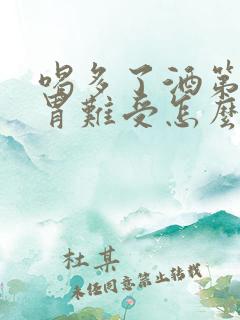 喝多了酒第
胃難受怎麼
杜某
未经同意禁止转载